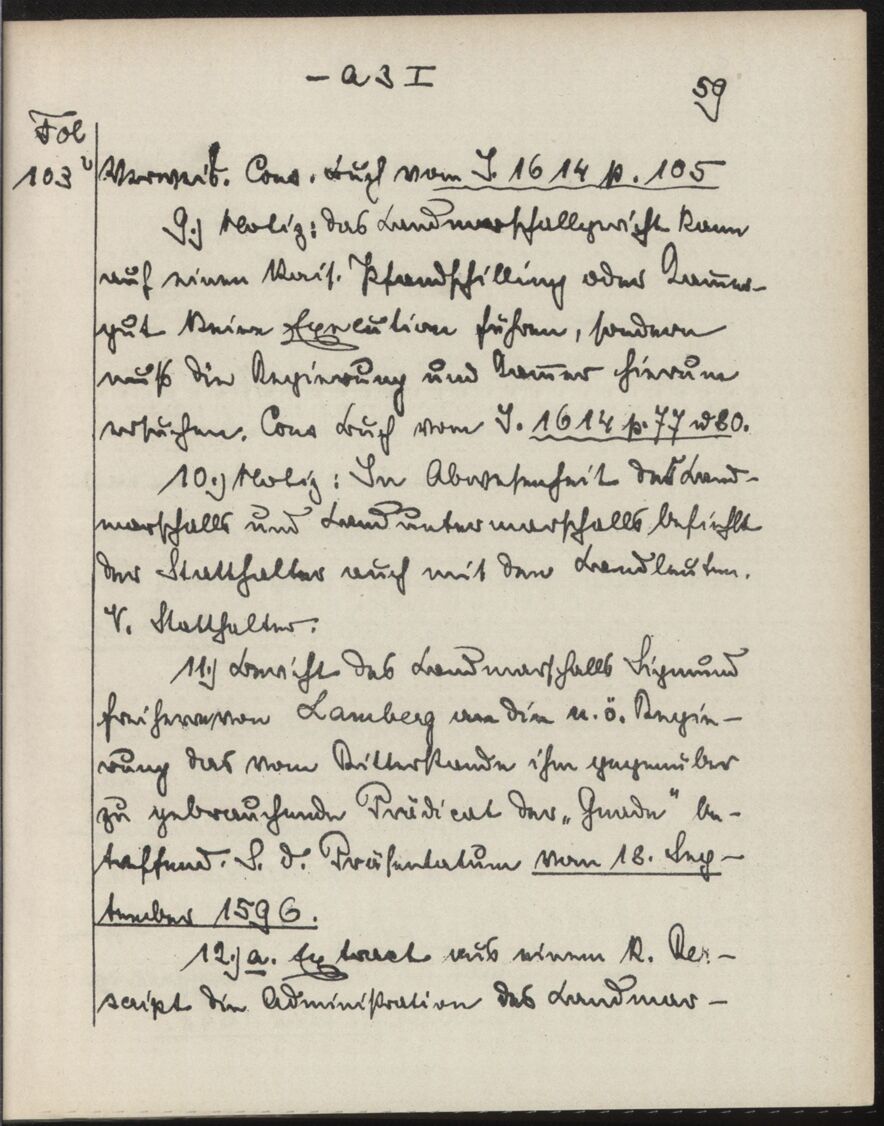 - A 3 I
59
Fol
103v Verweis. Cons. Buch vom J. 1614 p. 105
9.) Notiz: das Landmarschallgericht kann
auf einen Kais. Pfandschilling oder Kam̄er-
gut keine Execution führen, sondern
muß die Regierung und Kam̄er hierum
ersuchen. Cons Buch vom J. 1614 p. 77 u 80.
10.) Notiz: In Abwesenheit des Land-
marschalls und Landuntermarschalls befiehlt
der Statthalter auch mit den Landleuten.
V. Statthalter.
11.) Bericht des Landmarschalls Sigmund
Freiherrn von Lamberg an die n. ö. Regie-
rung das vom Ritterstande ihm gegenüber
zu gebrauchende Prädicat der „Gnade" be-
treffend. S. d. Präsentatum vom 18. Sep-
tember 1596.
12.) a. Extract aus einem K. Re-
script die Administration des Landmar-